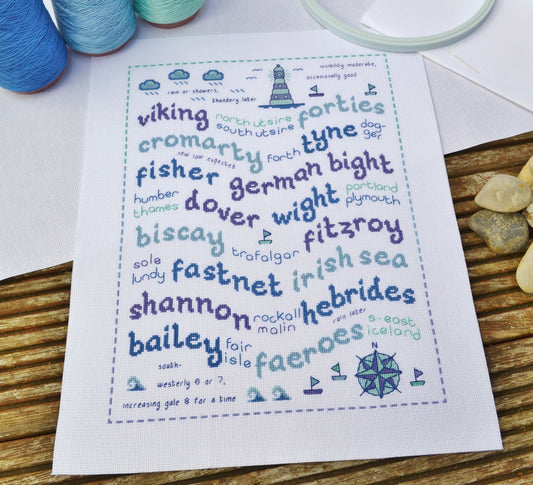 visibility moderate,
occasionally good
rain or showers,
thundery later
viking
north utsire
south utsire
forties
cromarty
new low expected
forth
tyne
dog-
ger
fisher
german bight
humber
thames
dover
wight
portland
plymouth
biscay
trafalgar
fitzroy
sole
lundy
fastnet
irish sea
shannon
rockall
malin
hebrides
rain later
bailey
fair
isle
faeroes
s-east
iceland
south-
westerly 6 or 7,
increasing gale 8 for a time
N